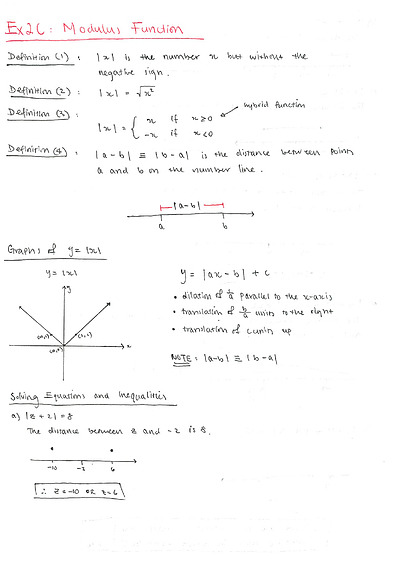 Ex2C: Modulus Function
Definition (1) : |x| is the number x but without the
negative sign.
Definition (2) : |x| = √x²
Definition (3) :
hybrid function
|x| = { x if x≥0
-x if x<0
Definition (4) : |a-b| ≡ |b-a| is the distance between points
a and b on the number line.
|a-b|
a b
Graphs of y=|x|
y = |x|
y = |ax-b| + c
y
• dilation of 1/a parallel to the x-axis
• translation of b/a units to the right
• translation of c units up
x
NOTE: |a-b| ≡ |b-a|
Solving Equations and Inequalities
a) |z+2| = 8
The distance between z and -2 is 8.
-10 -2 6
∴ z=-10 or z=6